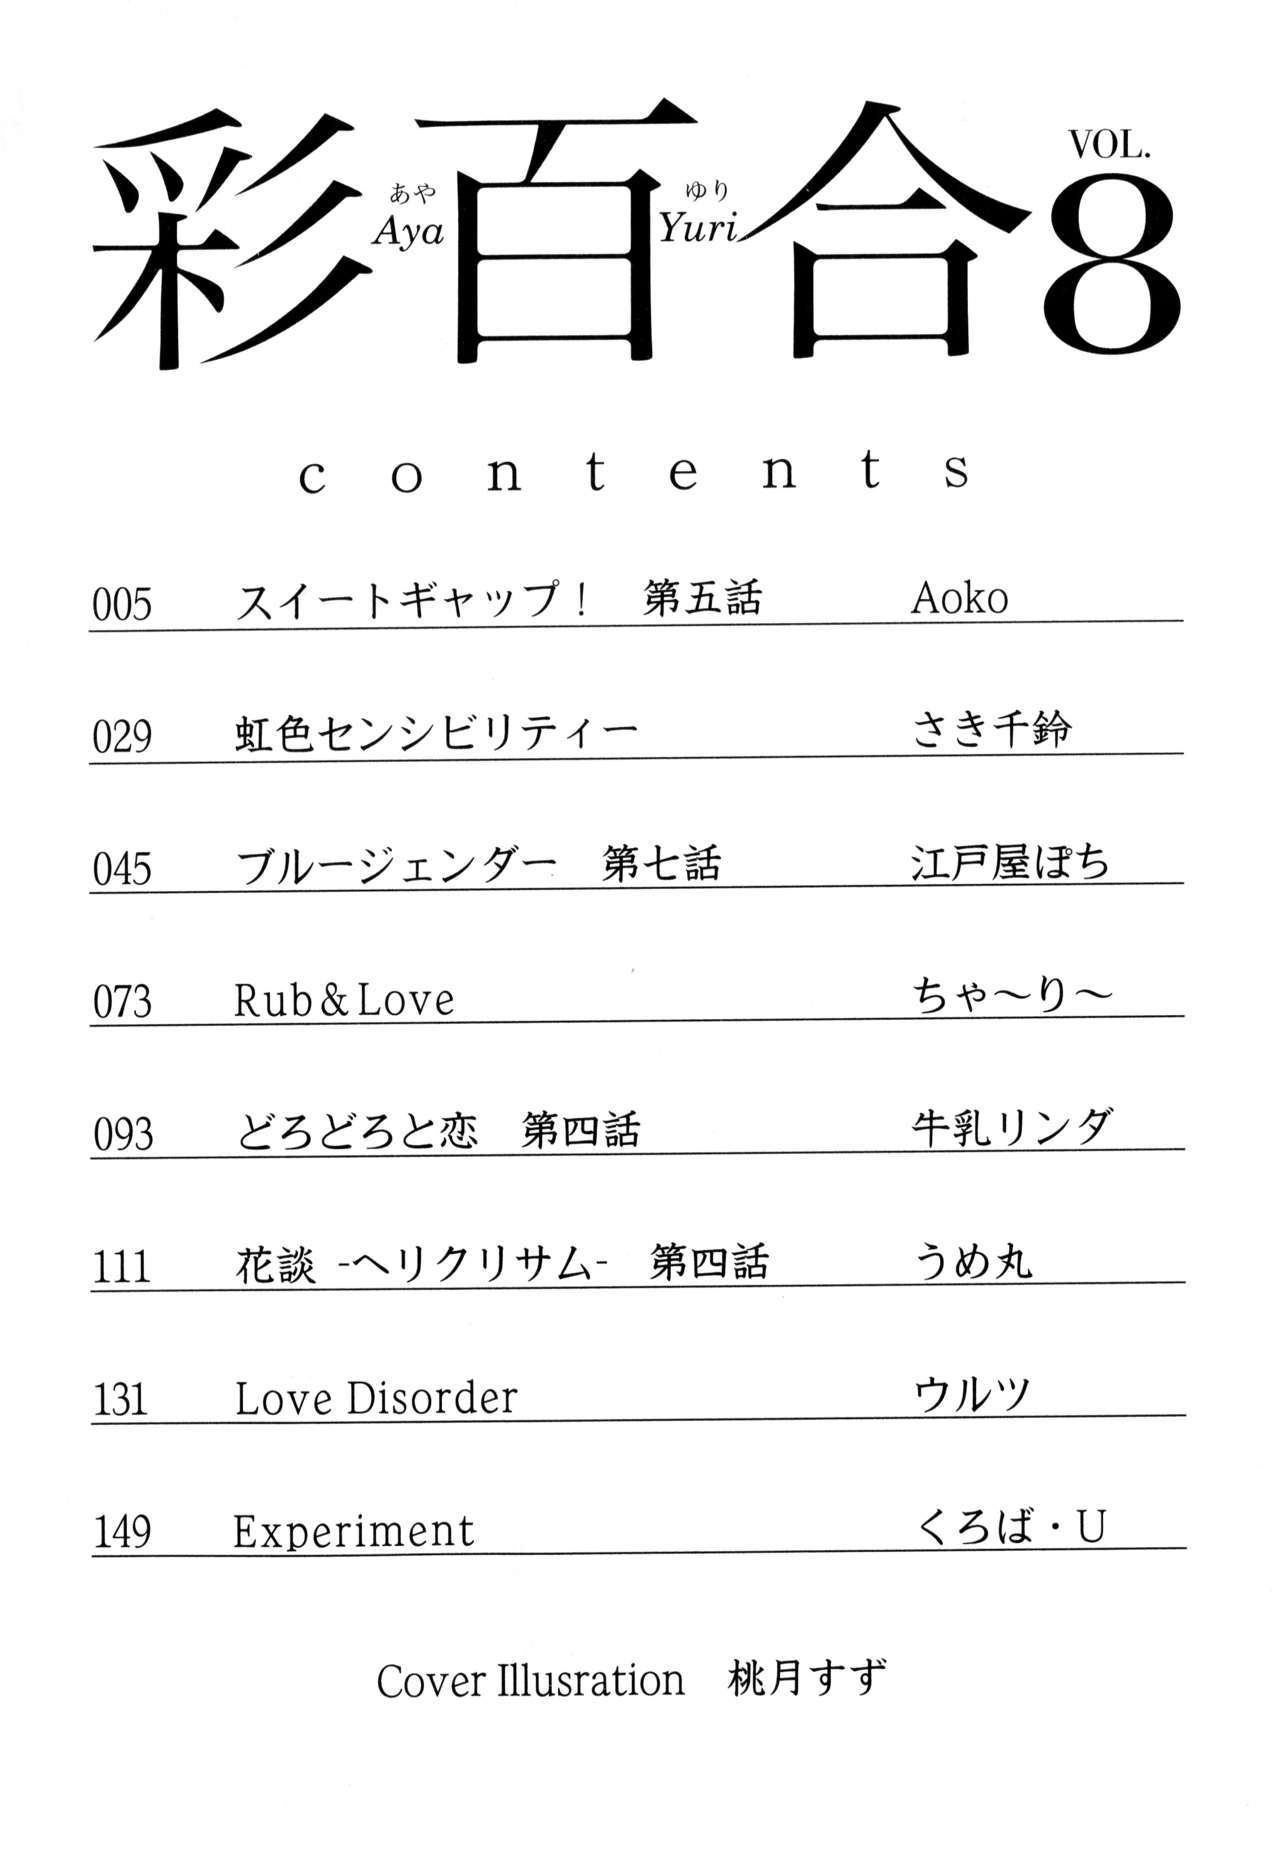 彩百合 VOL. 8
あや ゆり
Aya Yuri
contents
005 スイートギャップ！ 第五話 Aoko
029 虹色センシビリティー さき千鈴
045 ブルージェンダー 第七話 江戸屋ぽち
073 Rub＆Love ちゃ〜り〜
093 どろどろと恋 第四話 牛乳リンダ
111 花談 -ヘリクリサム- 第四話 うめ丸
131 Love Disorder ウルツ
149 Experiment くろば・U
Cover Illusration 桃月すず